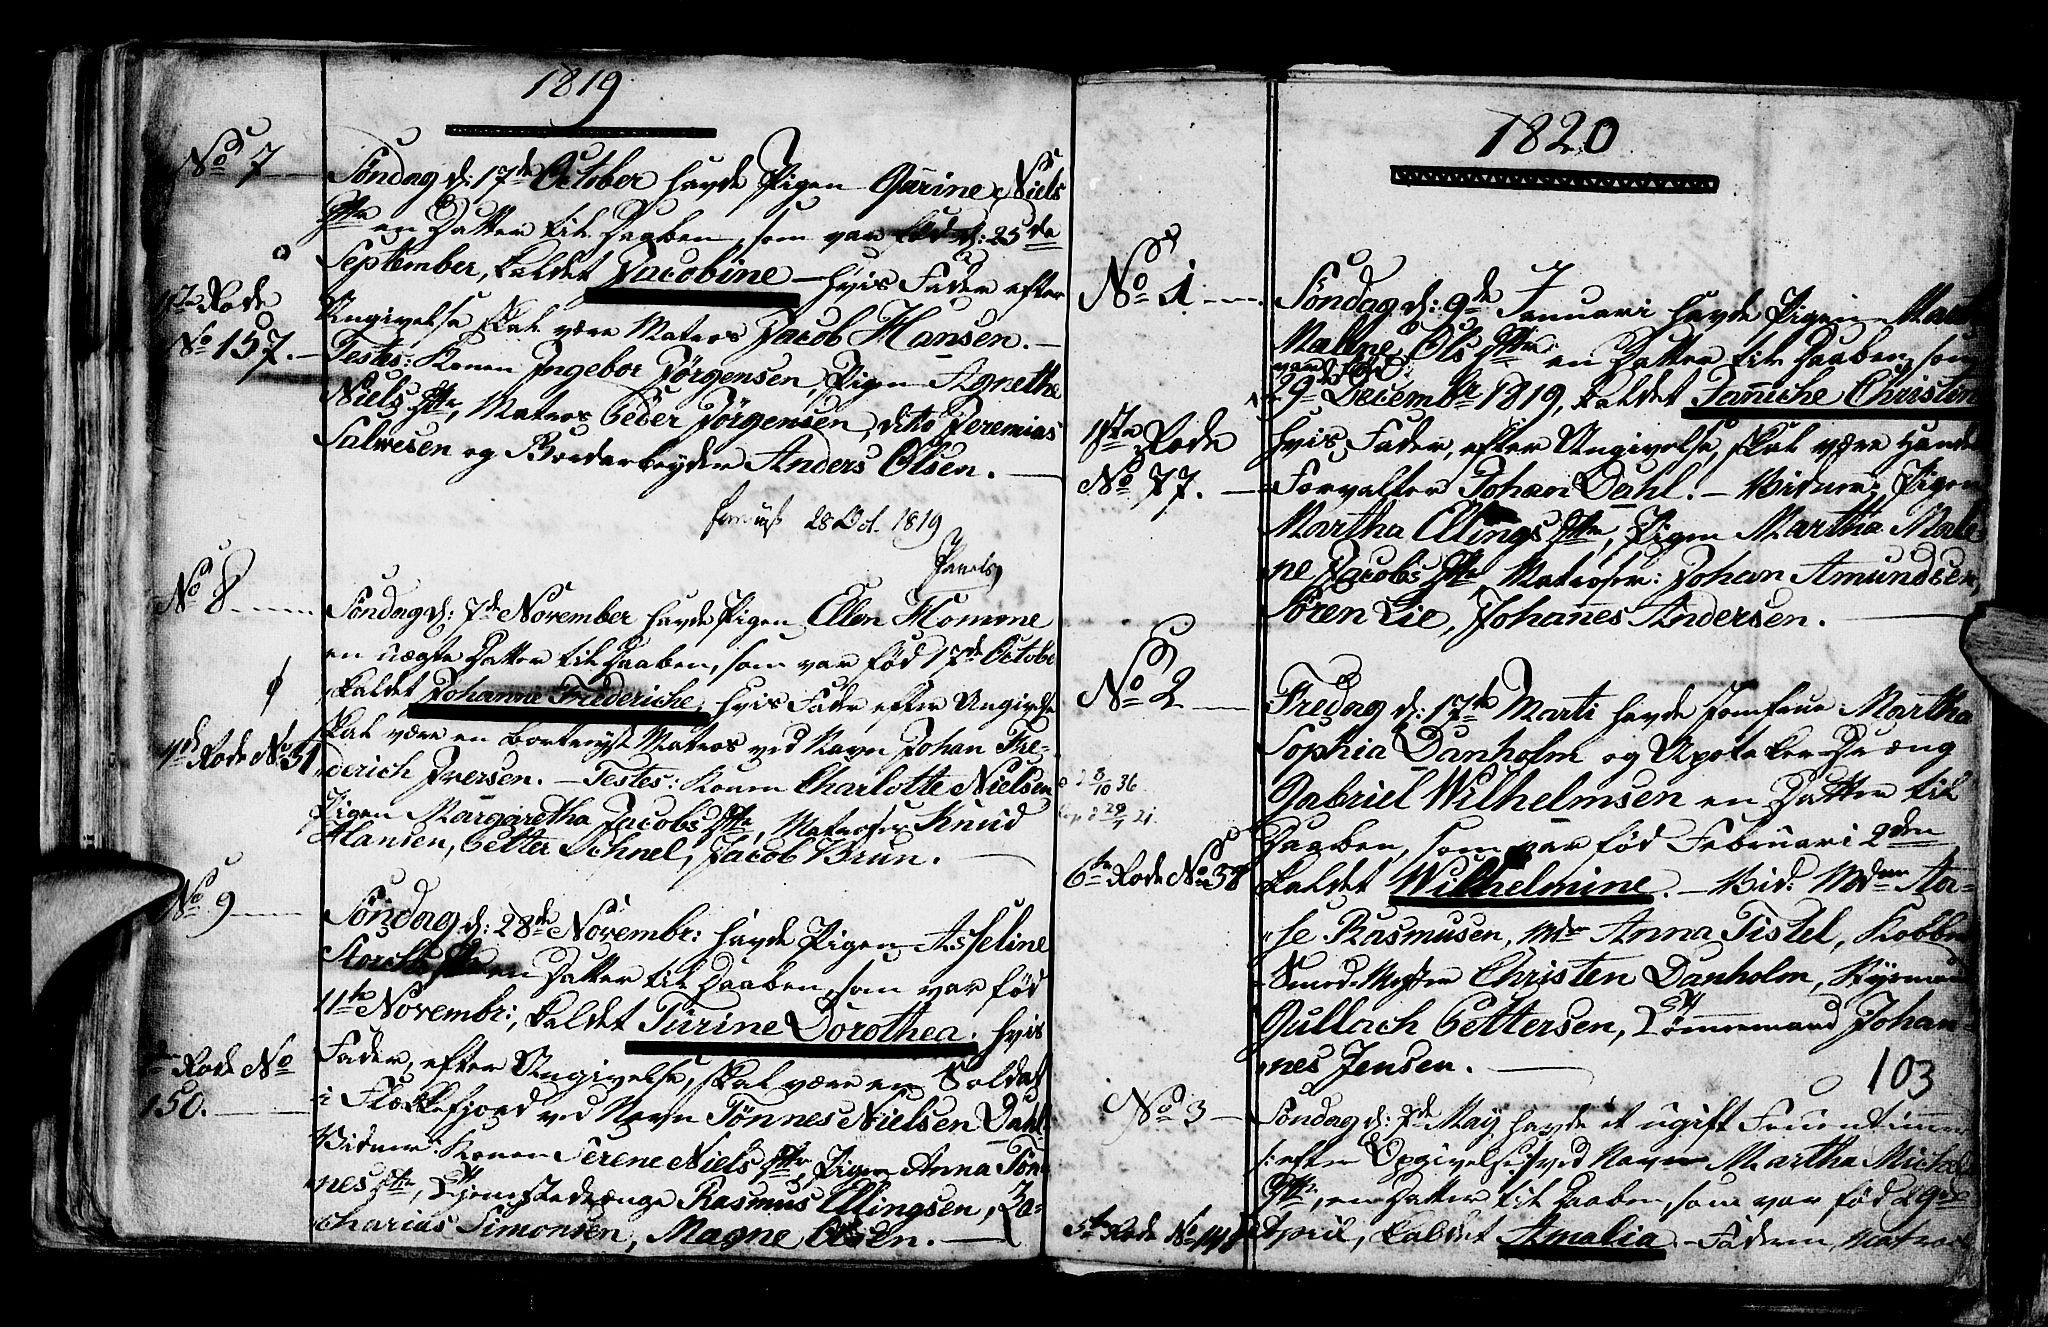 1819
No 7
Søndag d: 17de October havde Pigen Garine Niels
Dttr en Datter til Daaben, som var fød d: 25de
September, kaldet Jacobine – hvis Fader efter
Angivelse skal være Matros Jacob Hansen. –
Testes: Konen Ingebor Jørgensen, Pigen Agnethe
Niels Dttr, Matros Peder Jørgensen, dito Jeremias
Salvesen og Bordarbeyder Anders Olsen. –
Rode
No 157. –
28 Oct. 1819
Pavels
No 8
Søndag d: 7de November havde Pigen Ellen Homme
en uægte Datter til Daaben, som var fød 17de Octobr
kaldet Johanne Friederiche, hvis Fader efter Angivelse
skal være en bortreyst Matros ved Navn Johan Fre-
derich Iversen. – Testes: Konen Charlotte Nielsen
Pigen Margaretha Jacobs Dttr, Matroser Knud
Hansen, Petter Schnel, Jacob Brun. –
Rode No 51
No 9
Søndag d: 28de Novembr: havde Pigen Asseline
Storch en Datter til Daaben, som var fød
11te Novembr:, kaldet Turine Dorothea, hvis
Fader, efter Angivelse, skal være en Soldat
i Flekkefjord ved Navn Tönnes Nielsen Dahl.
Vidner: Konen Serene Niels Dttr, Pigen Anna Tön-
nes Dttr, Tjenestedrænge Rasmus Ellingsen, Za-
charias Simonsen, Magne Olsen. –
Rode No
150. –
1820
No 1. –
Søndag d: 9de Januari havde Pigen
Malene Ols Dttr en Datter til Daaben, som
var fød
29de Decembr 1819, kaldet Janiche Christin
hvis Fader, efter Angivelse, skal være Handels
Forvalter Johan Dahl. – Vidner: Pigen
Martha Ellings Dttr, Pigen Martha Male-
ne Jacobs Dttr, Matroser: Johan Amundsen,
Sören Lie, Johannes Andersen. –
Rode
No 77. –
No 2
Fredag d: 17de Marti havde Jomfrue Martha
Sophia Danholm og Apoteker Dræng
Gabriel Wilhelmsen en Datter til
Daaben, som var fød Februari 2den
kaldet Wilhelmine. – Vid: Mdme Aa-
se Rasmusen, Mdme Anna Tistel, Kobber
Smed-Mester Christen Danholm, Styrmand
Gullach Pettersen, Tømmermand Johan-
nes Jensen. –
6te Rode No 58
103
No 3 –
Søndag d: 7de May havde et ugift Fruentimmer
/: efter Opgivelse :/ ved Navn Martha Michels
Dttr, en Datter til Daaben, som var fød 29de
April, kaldet Amalia. – Faderen, Matros
5te Rode No 148